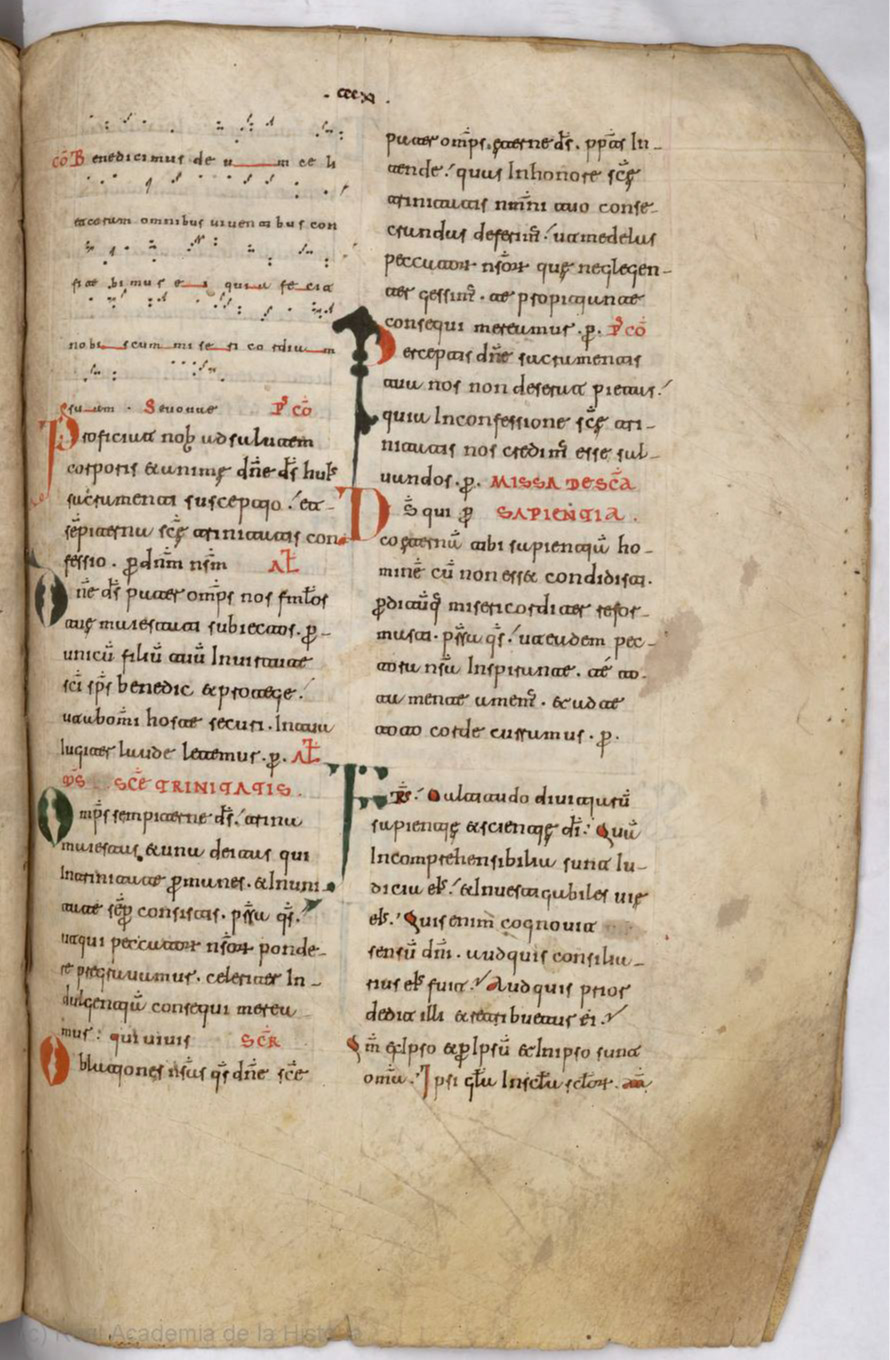 · cccxi ·
cō Benedicimus deum celi
et coram omnibus uiuentibus con
fite bimur ei quia fecit
nobiscum misericordiam
suam · Seuouae P̄ cō
Proficiat nob̄ ad salutem
corporis & animę dn̄e ds̄ huīs
sacramenti susceptio / et
sēpiterna scę̄ trinitatis con
fessio . ꝑ dn̄m nr̄m Al̄
Dn̄e ds̄ pater omp̄s nos fml̄os
tuę maiestati subiectos . ꝑ
unicū filiū tuū In uirtute
sci sps̄ benedic & protege /
ut ab om̄i hoste securi . In tua
lugiter laude letemur . ꝑ . Al̄
D̄S SCĒ TRINITATIS .
Omp̄s sempiterne ds̄ / trina
maiestas & una deitas qui
In trinitate ꝑmanes . & In uni
tate sēꝑ consistis . pr̄sta qs̄ /
ut qui peccator nr̄or ponde
re pregrauamur . celeriter In
dulgentiā consequi merea
mur : qui uiuis SCR̄
Oblationes nr̄as qs̄ dn̄e scē
pater omp̄s . ęterne ds̄ . pp̄tr In
tende / quas In honore scę̄
trinitatis nn̄ni tuo conse
crandas deferim̄ / ut medelas
peccator nr̄or quę neglegen
ter gessim̄ . te propitiante
consequi mereamur . ꝑ . P̄ cō
Perceptis dn̄e sacramentis
tua nos non deserat pietas /
quia In confessione scę̄ tri
nitatis nos credim̄ esse sal
uandos . ꝑ . MISSA DE SCĀ
Ds̄ qui ꝑ SAPIENTIA .
coęternā tibi sapientiā ho
minē cū non esset condidisti .
ꝑditūq̄ misericorditer refor
masti . pr̄sta qs̄ / ut eadem pec
tora nr̄a Inspirante . te to
ta mente amem̄ . & ad te
toto corde curramus . ꝑ .
Fr̄s / O altitudo diuitiarū
sapientię & scientię di / Quā
Incomprehensibilia sunt Iu
dicia eīs / & Inuestigabiles uię
eīs / Quis enim cognouit
sensū dn̄i . aud quis consilia
rius eīs fuit / Aud quis prior
dedit illi & retribuetur ei /
Qm̄ ex Ipso & ꝑ Ipsū & In ipso sunt
omīa . Ipsi gl̄a In scl̄a scl̄or . am
(c) Real Academia de la Historia